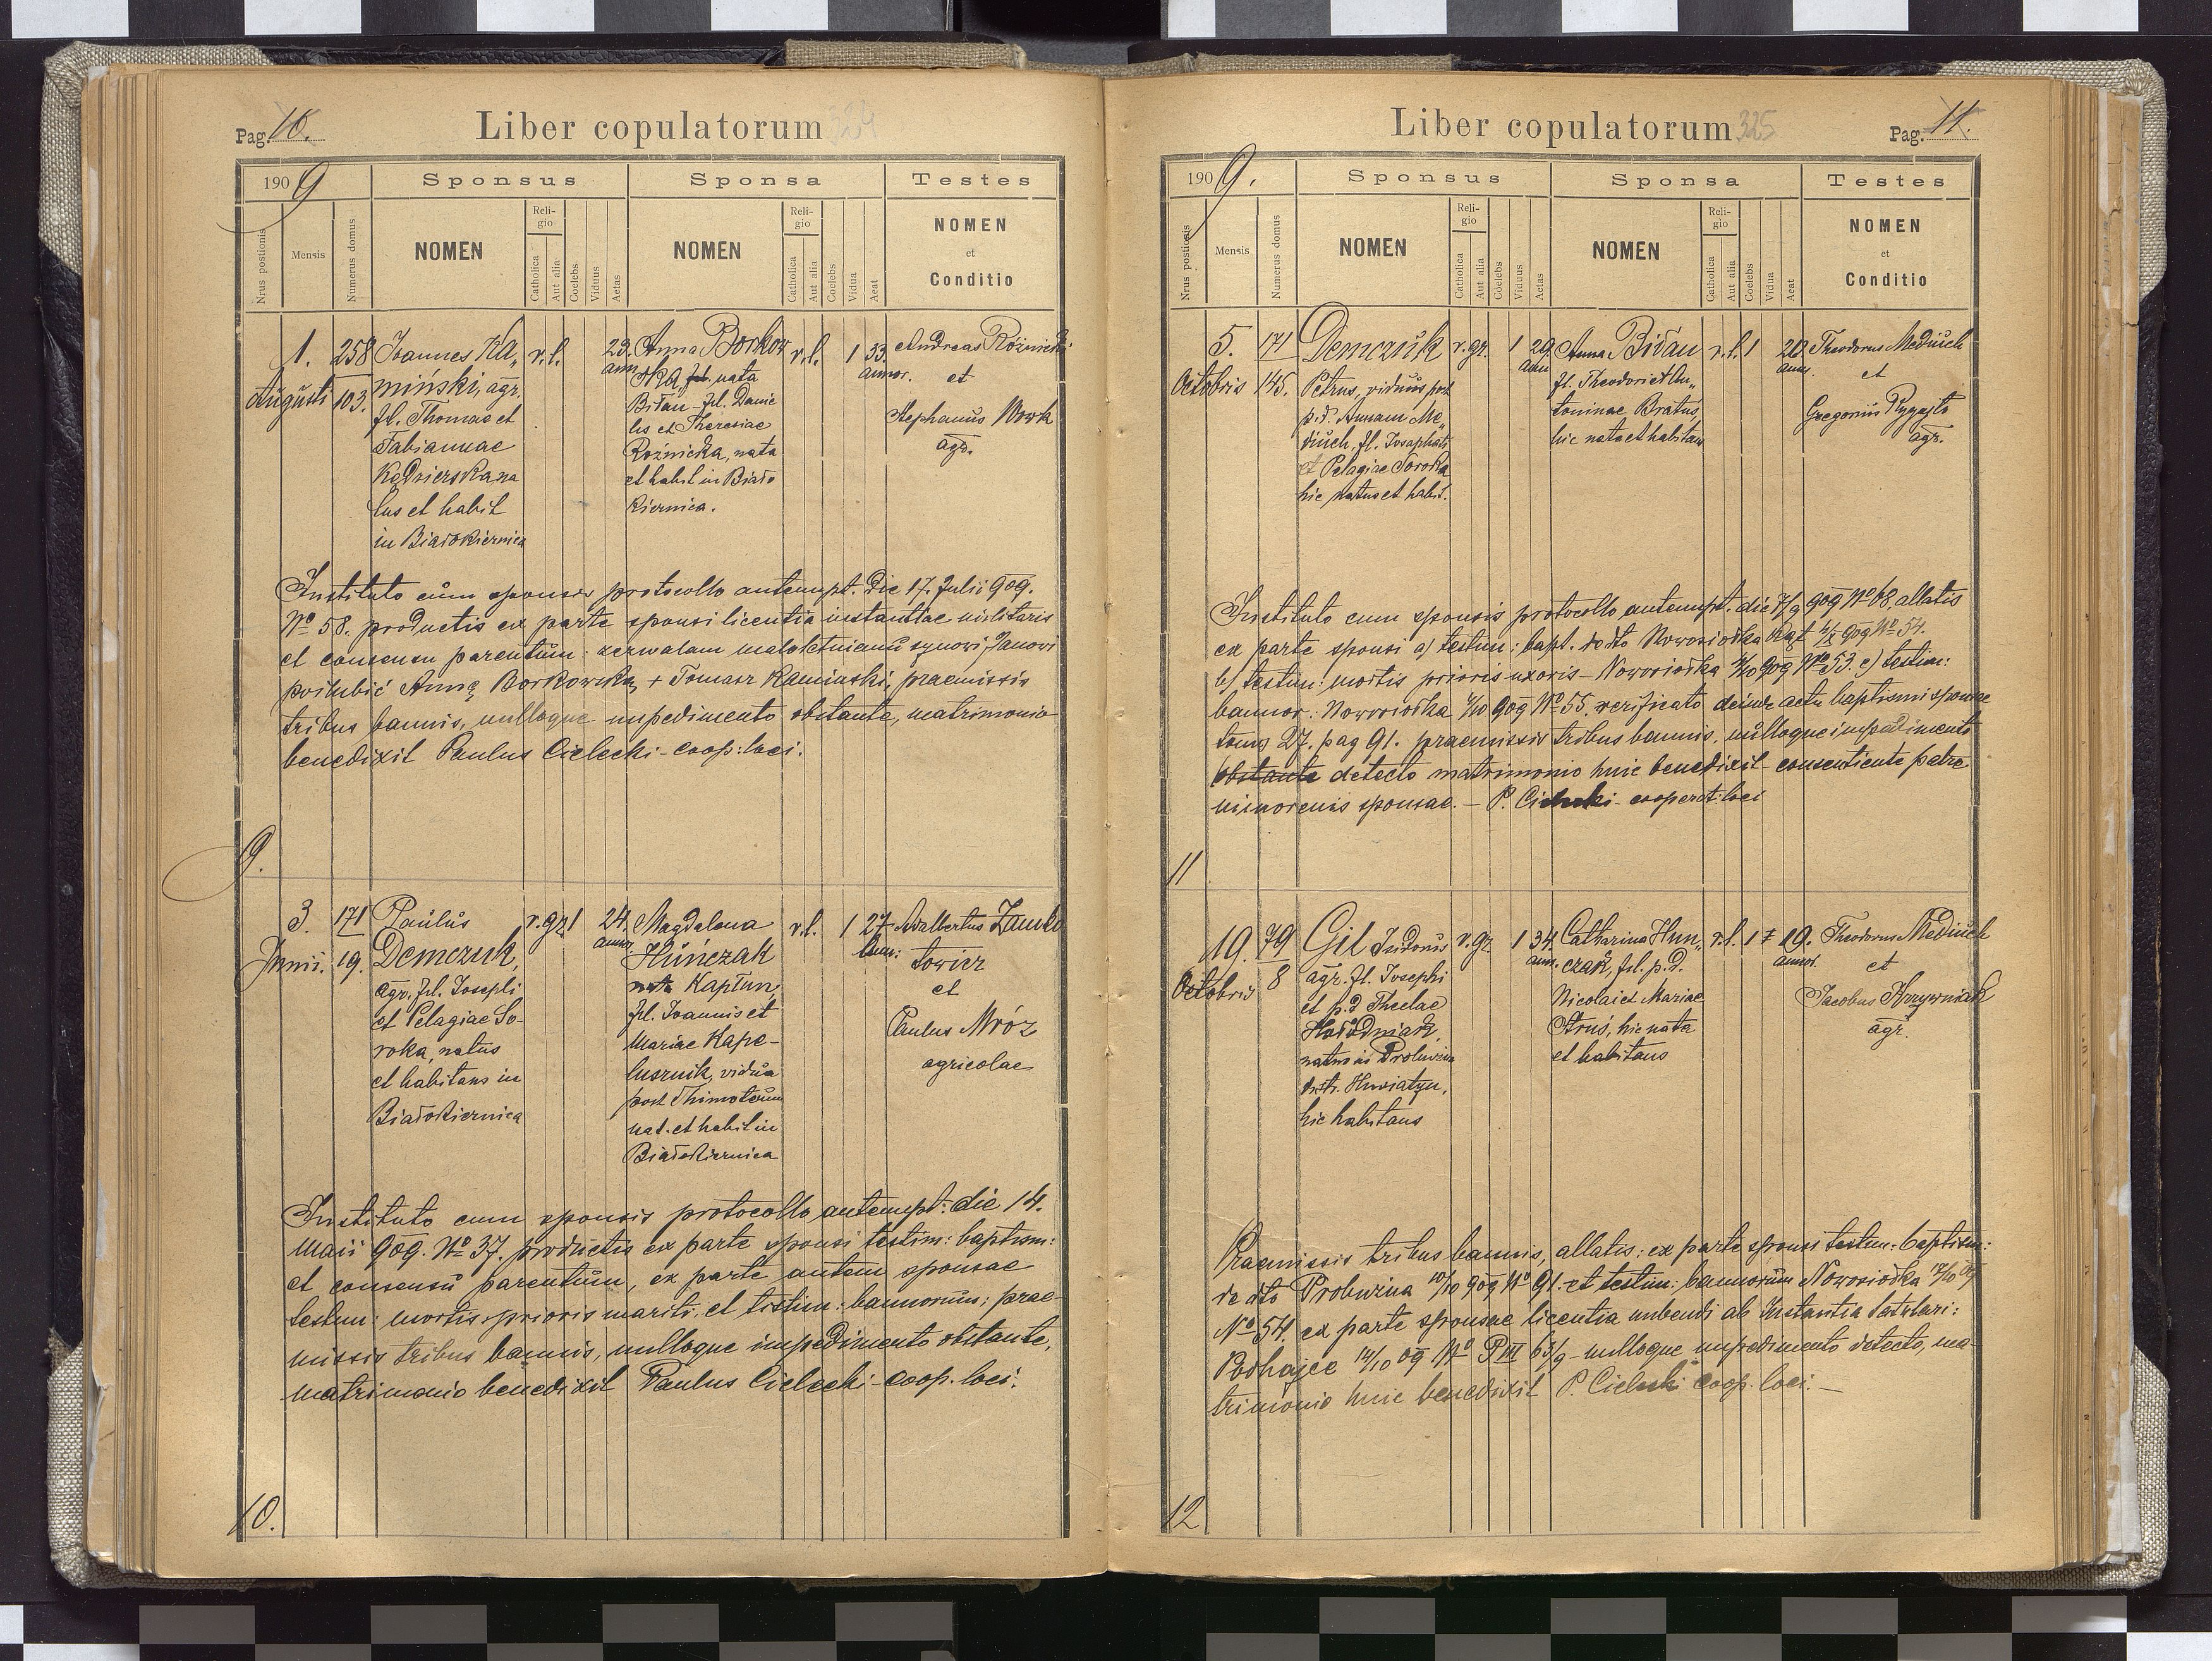 Pag. 10.
Liber copulatorum 324
1909
Sponsus
Sponsa
Testes
Nrus postionis
Mensis
Numerus domus
NOMEN
Religio
Catholica
Aut alia
Coelebs
Viduus
Aetas
NOMEN
Religio
Catholica
Aut alia
Coelebs
Vidua
Aeat
NOMEN
et
Conditio
1.
Augusti
258
103.
Joannes Ka„
miński, agr.
fil. Thomae et
Fabiannae
Kędzierska na
tus et habit
in Białokiernica
r.l.
23.
ann.
Anna Borkow
ska, nata
Bidau fil. Danie
lis et Theresiae
Roźnicka, nata
et habit in Biało
kiernica.
r.l.
1
33.
annor.
Andreas Róźnicki
et
Stephanus Nowk
agr.
Instituto cum sponsis protocollo antempt. die 17. Julii 909.
No 58. productis ex parte sponsi licentia instantiae militaris
et consensu parentum: zezwalam małoletniemu synowi Janowi
poślubić Annę Borkowską + Tomasz Kamiński, praemissis
tribus bannis, nulloque impedimento obstante, matrimonio
benedixit Paulus Cielecki - coop: loci.
9.
3.
Junii.
171
19.
Paulus
Demczuk,
agr., fil. Josephi
et Pelagiae So-
roka, natus
et habitans in
Białokiernica
r.gr.
1
24.
annor
Magdalena
Húńczak
nata Kapłun,
fil. Joannis et
Mariae Kape-
lusznik, vidua
post Thimoteum
nat. et habit in
Białokiernica
r.l.
1
27
ann:
Adalbertus Zawko
towicz
et
Paulus Mróz
agricolae
Instituto cum sponsis protocollo antempt: die 14.
Maii 909. No 37. productis ex parte sponsi testim: baptism:
et consensu parentum, ex parte autem sponsae
testim: mortis prioris mariti et testim: bannorum; prae-
missis tribus bannis, nulloque impedimento obstante,
matrimonio benedixit Paulus Cielecki - coop. loci.
10.
Liber copulatorum 325
Pag. 11.
1909.
Sponsus
Sponsa
Testes
Nrus postionis
Mensis
Numerus domus
NOMEN
Religio
Catholica
Aut alia
Coelebs
Viduus
Aetas
NOMEN
Religio
Catholica
Aut alia
Coelebs
Vidua
Aeat
NOMEN
et
Conditio
5.
Octobris
171
145.
Demczuk
Petrus, viduus post
p.d. Annam Me„
diuch, fil. Josaphati
et Pelagiae Soroka
hic natus et habit.
r.gr.
1
29.
ann
Anna Bidau
fil. Theodori et An„
toninae Bratus,
hic nata et habitans
r.l.
1
20.
ann.
Theodorus Mediuch
et
Gregorius
agr.
Instituto cum sponsis protocollo antempt. die 7/9 909 No 68, allatis
ex parte sponsi a) testim: bapt. de dto Nowosiołka No 54.
b) testim: mortis prioris uxoris - Nowosiołka 4/10 909 No 53. c) testim:
bannor: Nowosiołka 4/10 909 No 55. verificato deinde actu baptismi sponsae
tom. 27. pag 91. praemissis tribus bannis, nulloque impedimento
obstante detecto matrimonio huic benedixit - consentiente patre
minorenis sponsae. - P. Cielecki - cooperat: loci
11
19.
Octobris
79
8
Gil Isidorus
agr. fil. Josephi
et p.d. Theclae
Hołodniak,
natus in Probuzna
distr. Husiatyn,
hic habitans
r.gr.
1
34.
ann.
Catharina Hun„
czak, fil. p.d.
Nicolai et Mariae
Struś, hic nata
et habitans
r.l.
1
19.
annor.
Theodorus Mediuch
et
Jacobus Krzywniak
agr.
Praemissis tribus bannis, allatis: ex parte sponsi testim: baptism:
de dto Probuzna 10/10 909 No 91. et testim: bannorum Nowosiołka 17/10 09
No 54, ex parte sponsae licentia nubendi ab Instantia tutelari:
Podhajce 14/10 09 No P III 63/9 - nulloque impedimento detecto, ma-
trimonio huic benedixit P. Cielecki coop. loci. -
12